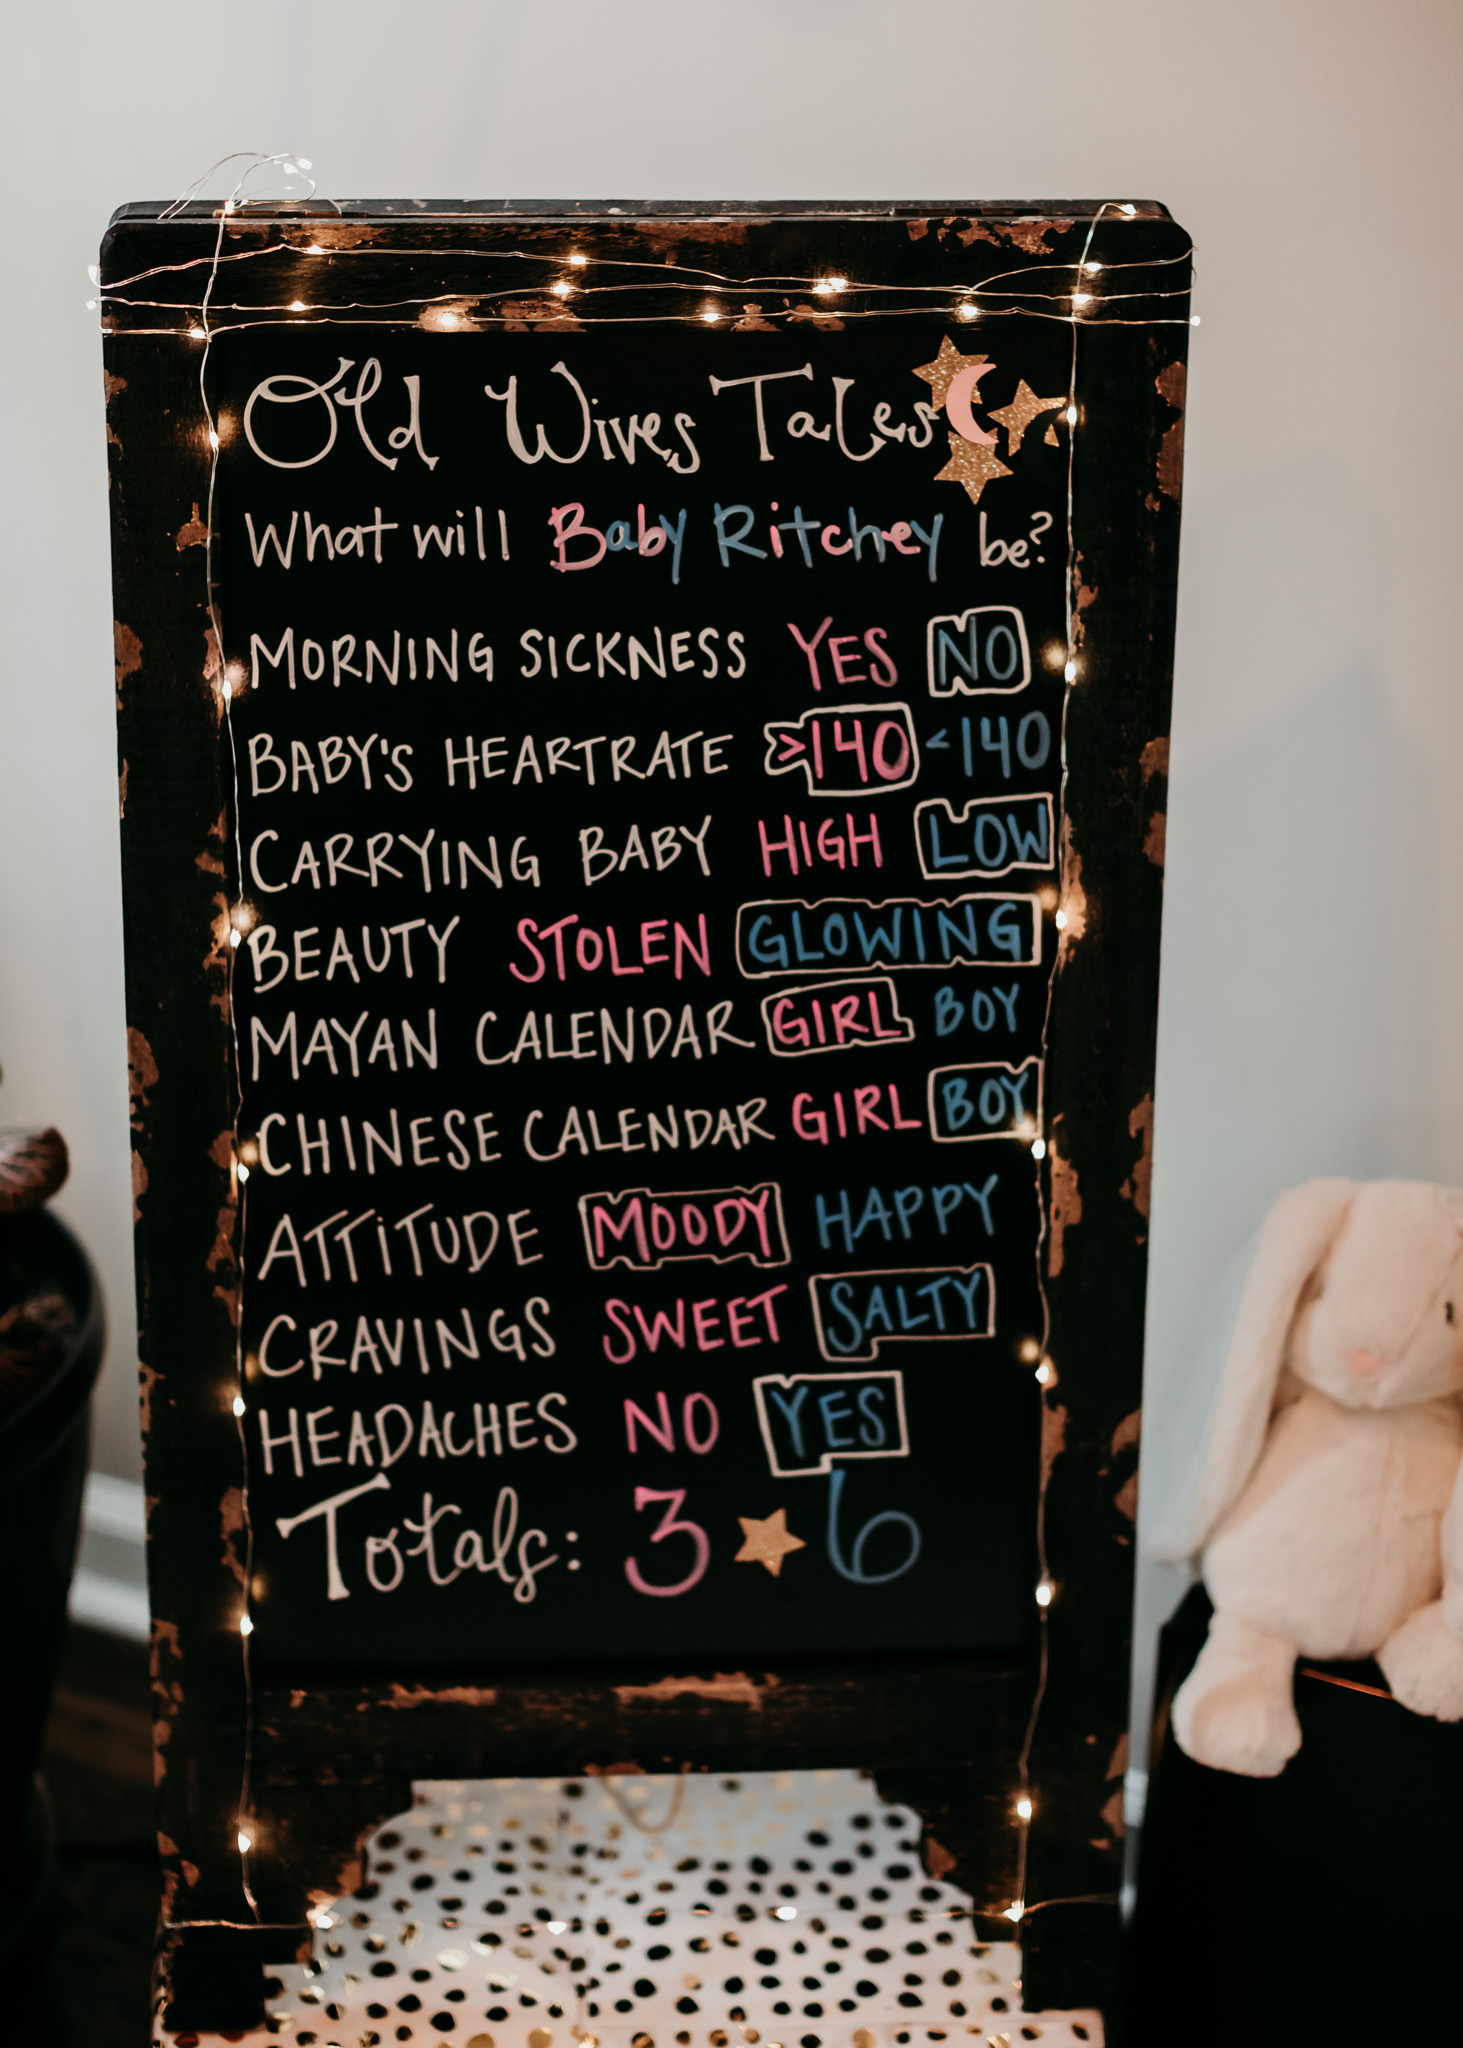 Old Wives Tales
What will Baby Ritchey be?
MORNING SICKNESS YES NO
BABY'S HEARTRATE >140 <140
CARRYING BABY HIGH LOW
BEAUTY STOLEN GLOWING
MAYAN CALENDAR GIRL BOY
CHINESE CALENDAR GIRL BOY
ATTITUDE MOODY HAPPY
CRAVINGS SWEET SALTY
HEADACHES NO YES
Totals: 3 6